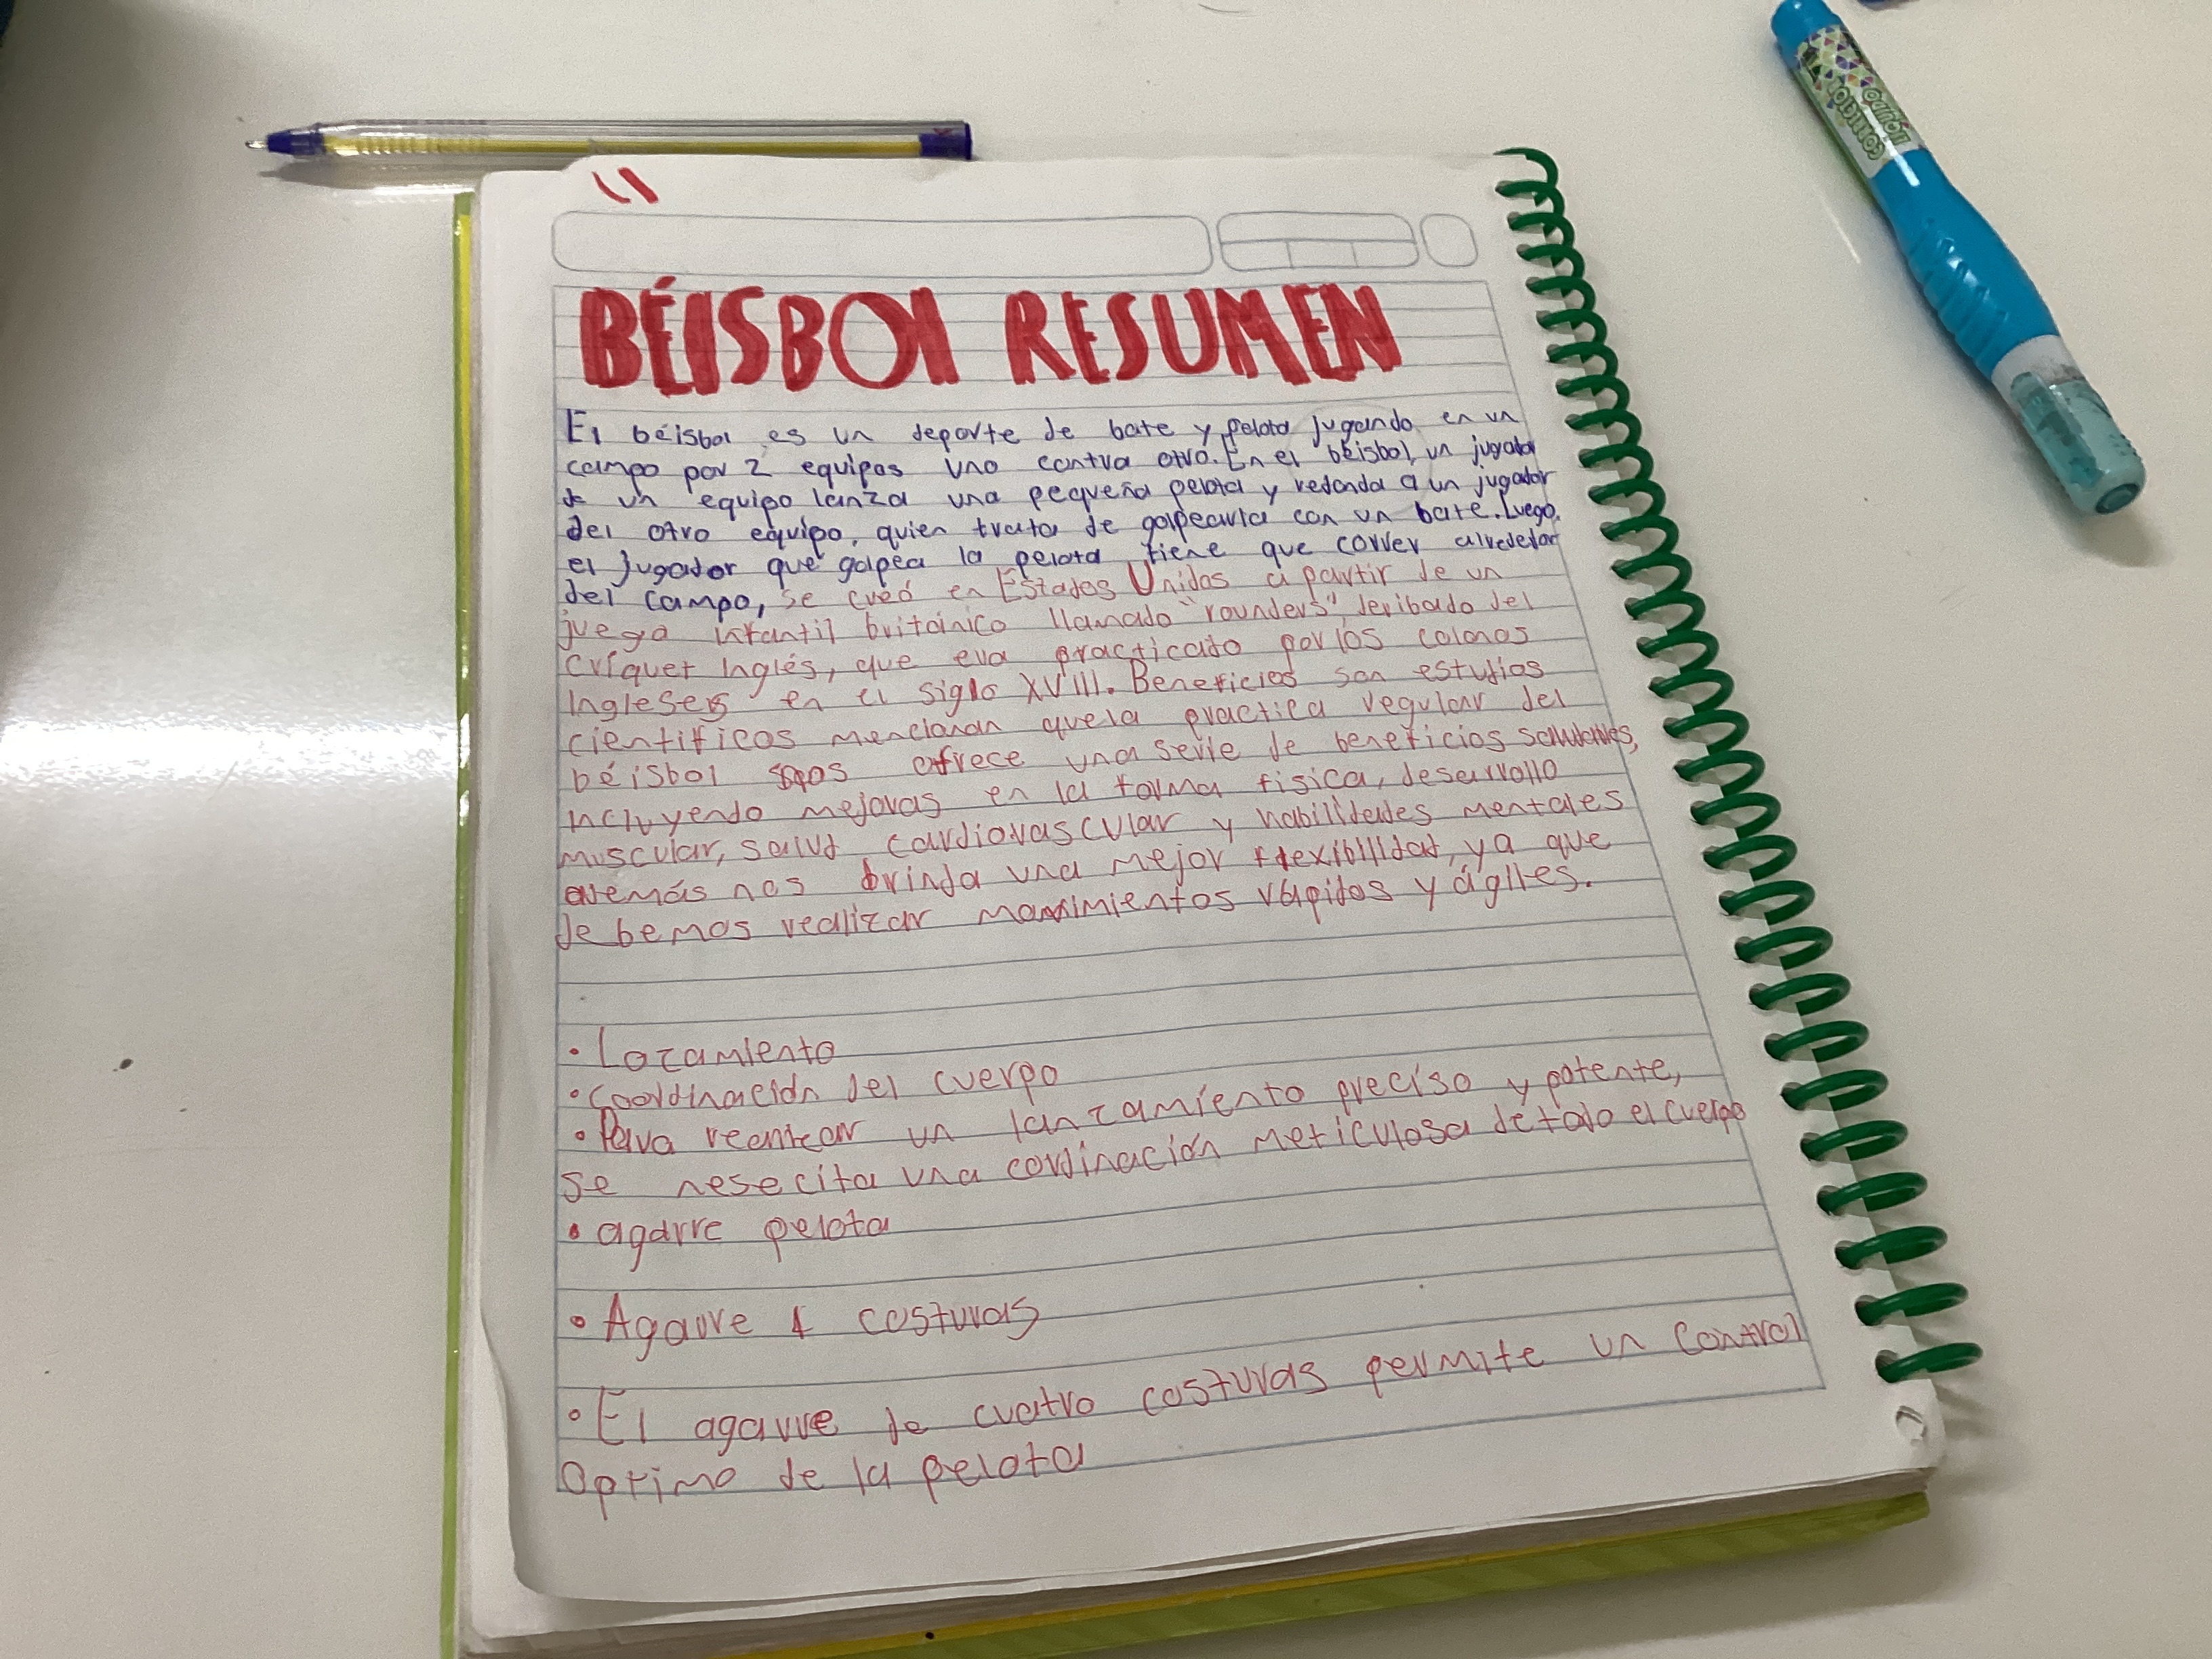 BÉISBOl RESUMEN
El béisbol es un deporte de bate y pelota jugando en un
campo por 2 equipos uno contra otro. En el béisbol, un jugador
de un equipo lanza una pequeña pelota y redonda a un jugador
del otro equipo, quien trata de golpearla con un bate. Luego,
el jugador que golpea la pelota tiene que correr alrededor
del campo, se creó en Estados Unidos a partir de un
juego infantil británico llamado "rounders", deribado del
críquet Inglés, que era practicado por los colonos
Ingleses en el siglo XVIII. Beneficios son estudios
científicos mencionan que la practica regular del
béisbol nos ofrece una serie de beneficios saludables,
incluyendo mejoras en la forma fisica, desarrollo
muscular, salud cardiovascular y habilidades mentales
además nos brinda una mejor flexibilidad, ya que
debemos realizar movimientos rápidos y ágiles.
• Lozamiento
• Coordinación del cuerpo
• Para reenizar un lanzamiento preciso y potente,
se nesecita una cordinación meticulosa de todo el cuerpo
• agarre pelota
• Agarre 4 costuras
• El agarre de cuatro costuras permite un control
Optimo de la pelota
CORRECTOR
LÍQUIDO